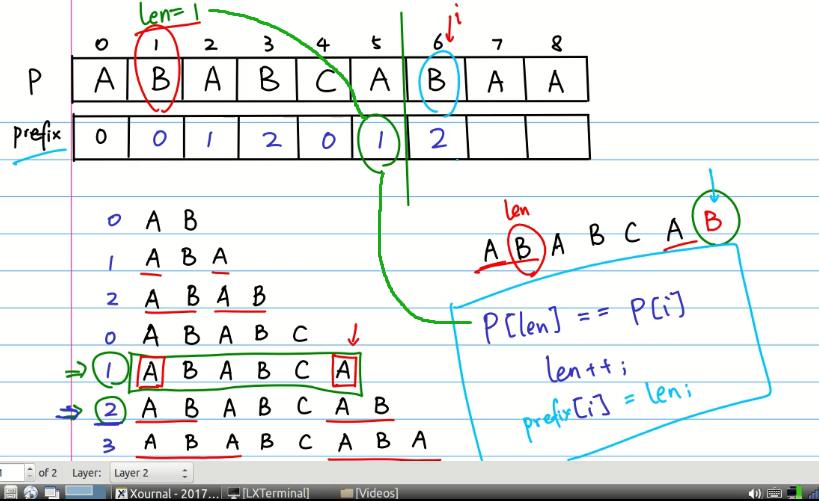 len=1
i
0 1 2 3 4 5 6 7 8
P A B A B C A B A A
prefix 0 0 1 2 0 1 2
0 A B
1 A B A
2 A B A B
0 A B A B C
⇒ 1 A B A B C A
⇒ 2 A B A B C A B
3 A B A B C A B A
len
A B A B C A B
P[len] == P[i]
len++;
prefix[i] = len;
1 of 2 Layer: Layer 2
Xournal - 2017... [LXTerminal] [Videos]